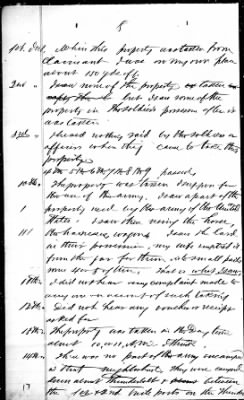 1st. Int. When this property was taken from
Claimant I was on my own place
about
2nd " I saw none of the property taken
but I saw some of the
property in the soldiers possession after it
was taken
3rd " I heard nothing said by the soldiers or
officers when they came to take this
property
4th 5th 6th 7th 8th & 9 passed
10th. The property was taken I suppose for
the use of the army. I saw a part of the
property used by the army of the United
States. I saw them using the horse,
the harness, wagon. I saw the lard
in their possession, my wife
from the jar for them, a small
. That is what I saw.
I did not hear any complaint made to
any one on account of such taking
Did not hear any voucher or receipt
asked for
13th. The property was taken in the Day time
about
14th. There was no part of the army encamped
in that neighborhood they were camped
down about Thunderbolt & between
the 1st & 2nd mile posts on the Thunder